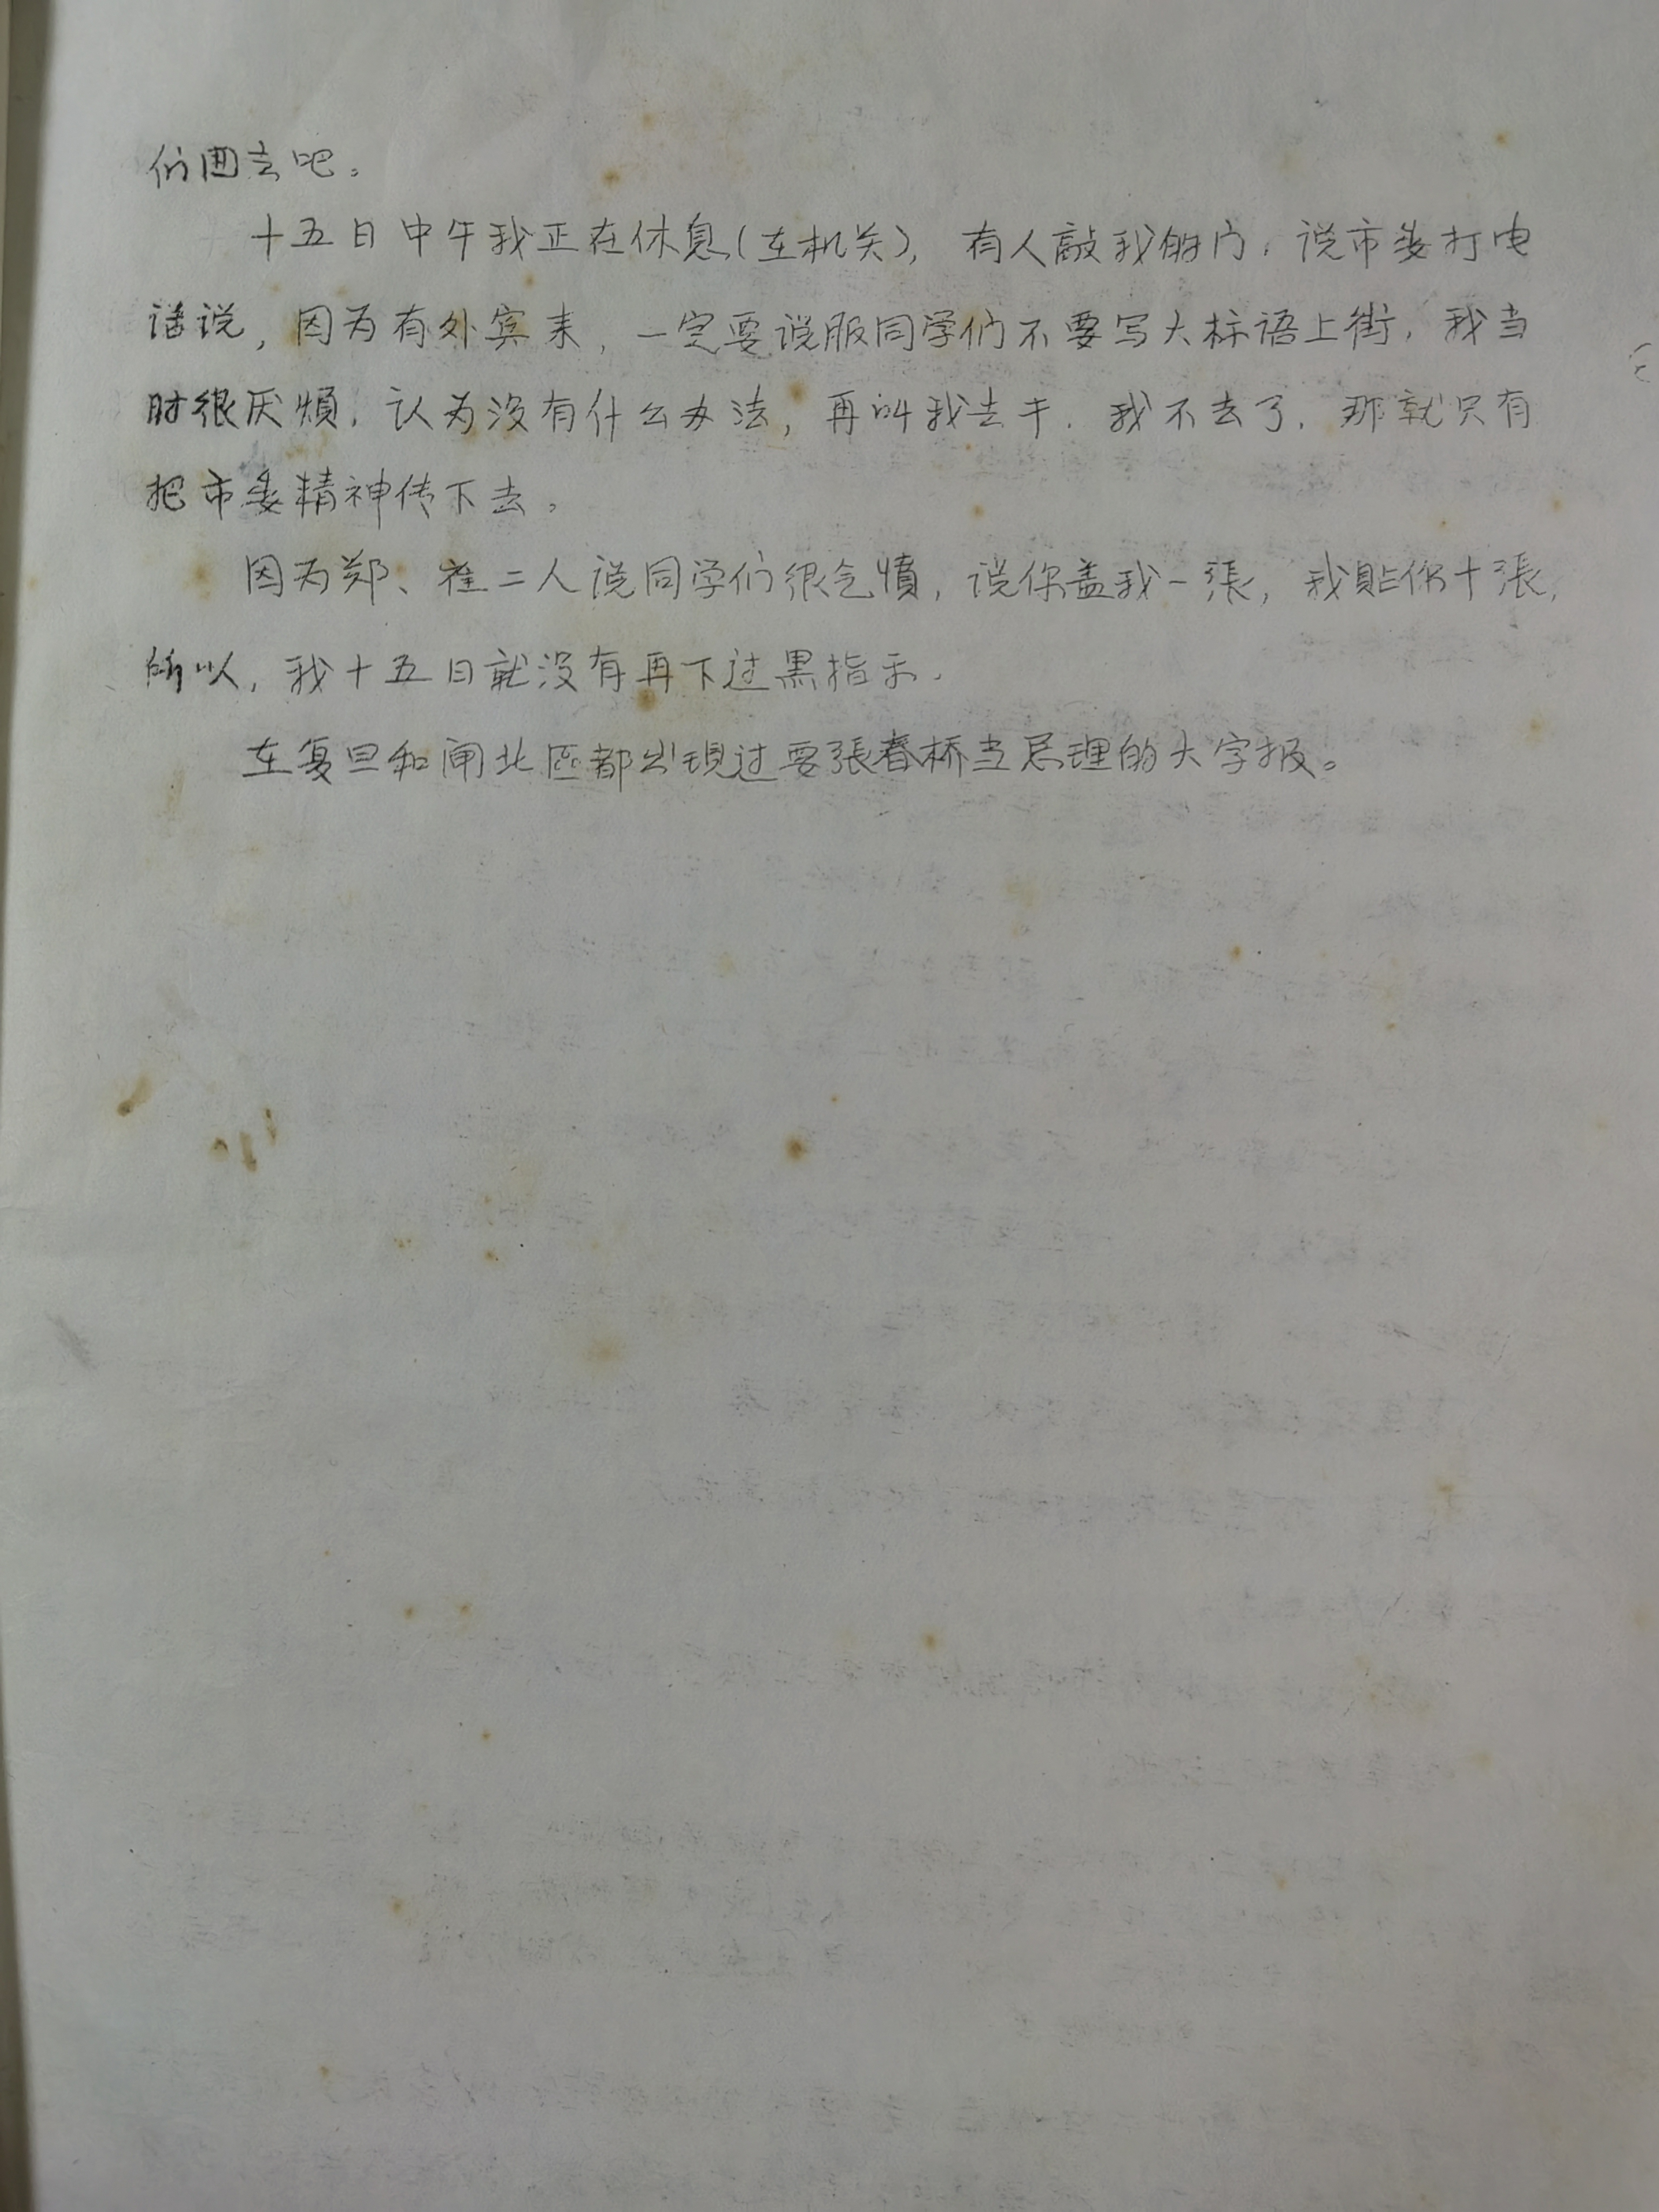 们回去吧。
十五日中午我正在休息(在机关),有人敲我的门,说市委打电
话说,因为有外宾来,一定要说服同学们不要写大标语上街,我当
时很厌煩,认为没有什么办法,再叫我去干,我不去了,那就只有
把市委精神传下去。
因为郑、崔二人说同学们很气愤,说你盖我一張,我貼你十張,
所以,我十五日就没有再下过黑指示。
在复旦和闸北區都出現过要張春桥当总理的大字报。